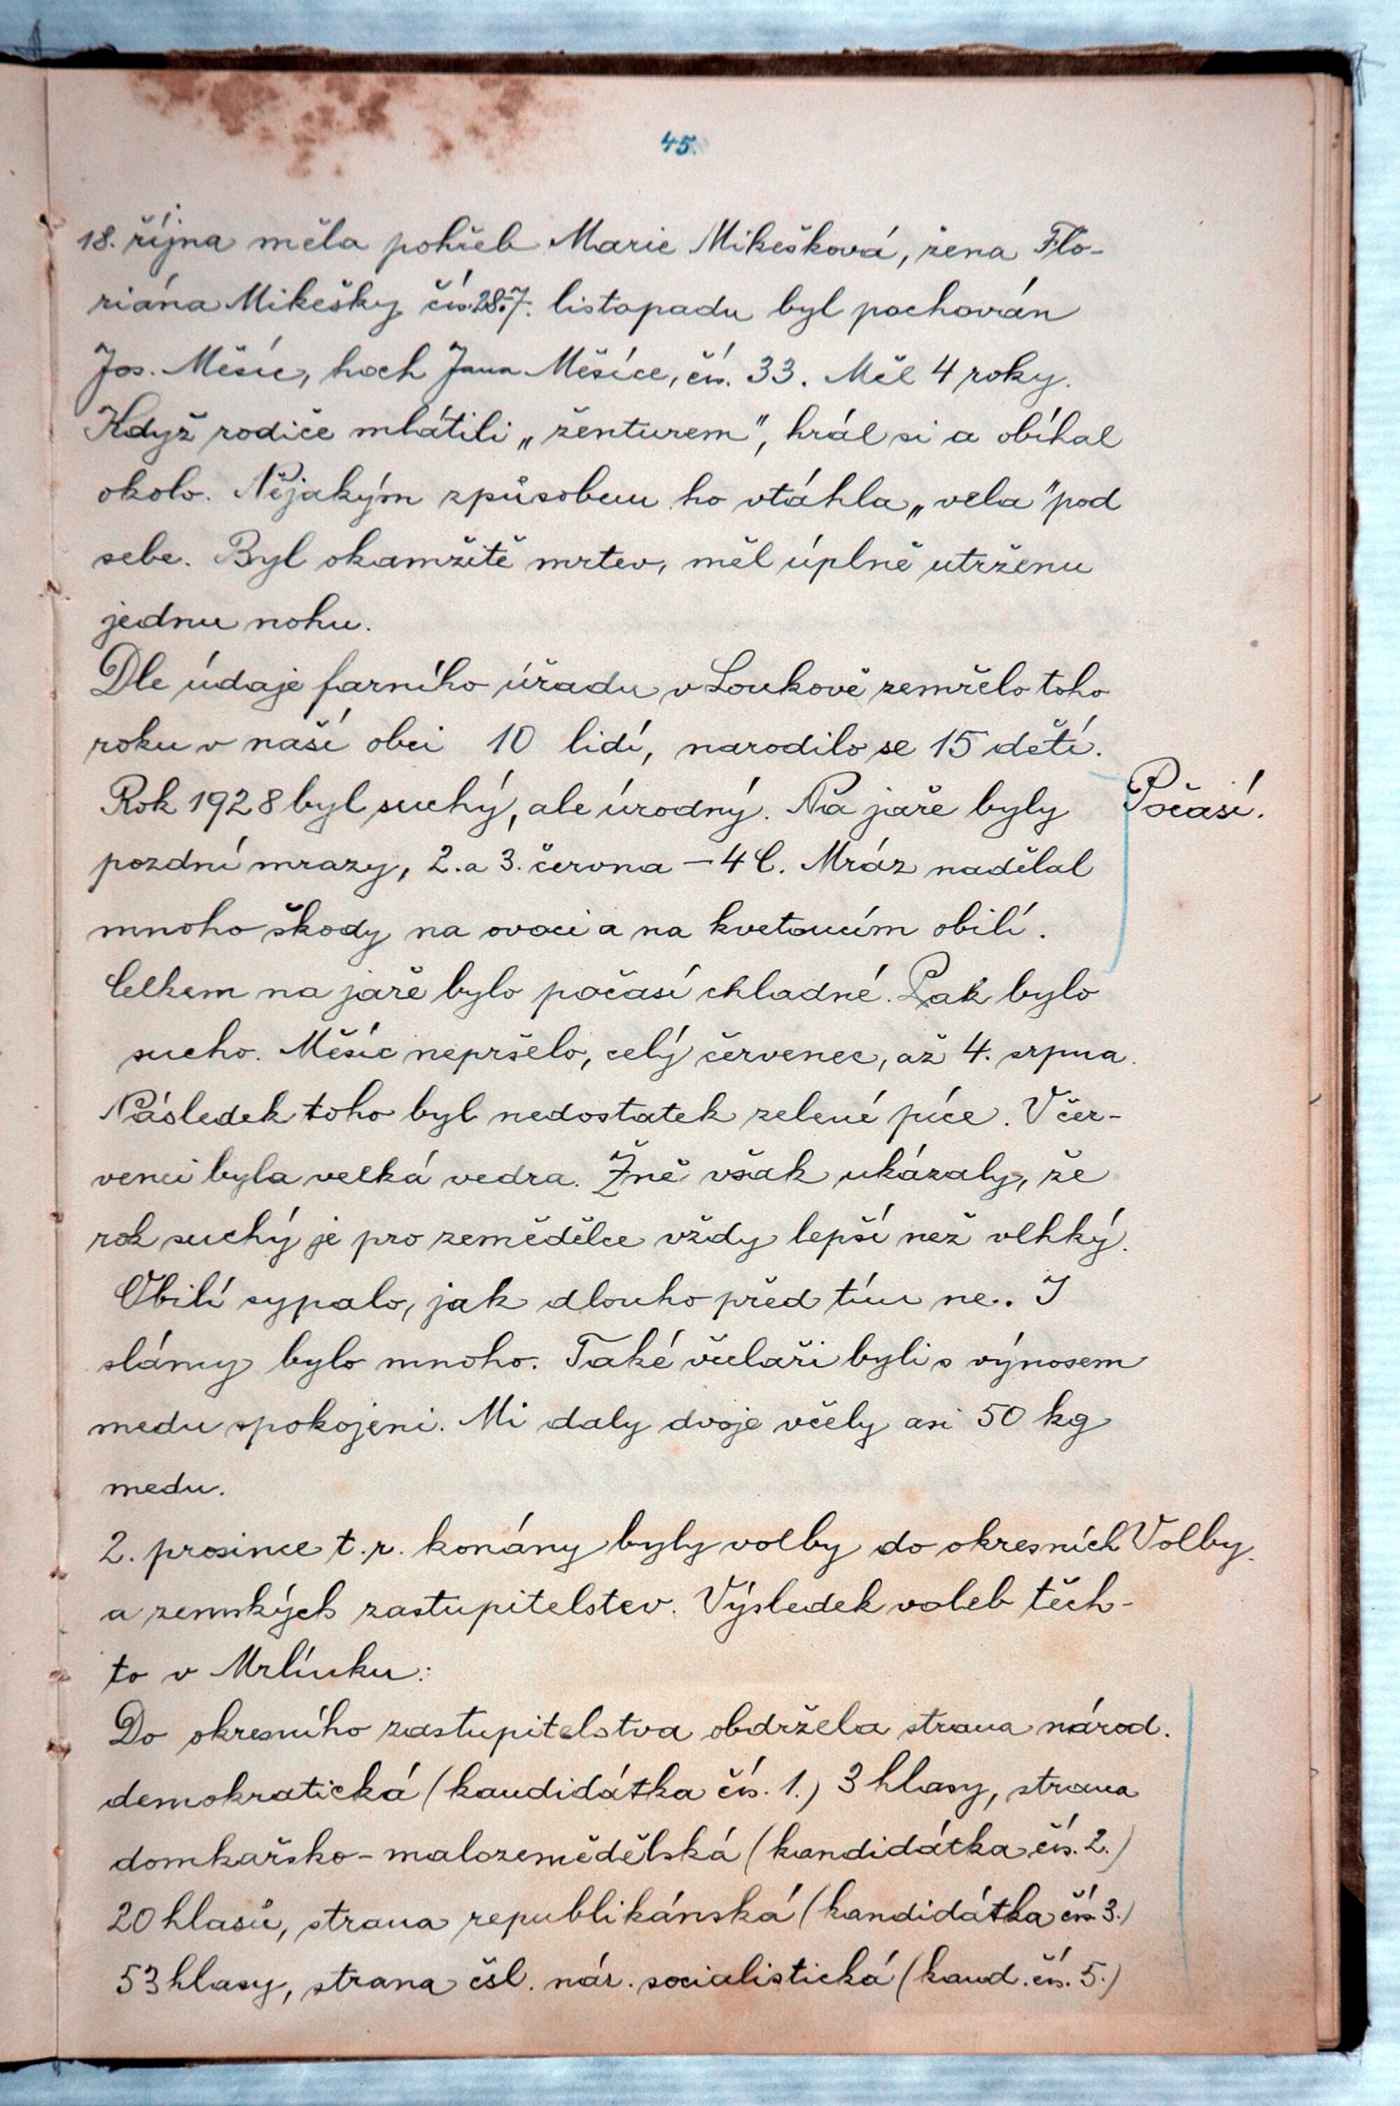 45.
18. října měla pohřeb Marie Mikešková, žena Flo-
riána Mikešky čís. 28. 7. listopadu byl pochován
Jos. Měsíc, hoch Jana Měsíce, čís. 33. Měl 4 roky.
Když rodiče mlátili „ženturem", hrál si a obíhal
okolo. Nějakým způsobem ho vtáhla „vela" pod
sebe. Byl okamžitě mrtev, měl úplně utrženu
jednu nohu.
Dle údaje farního úřadu v Loukově zemřelo toho
roku v naší obci 10 lidí, narodilo se 15 dětí.
Rok 1928 byl suchý, ale úrodný. Na jaře byly Počasí.
pozdní mrazy, 2. a 3. června – 4 C. Mráz nadělal
mnoho škody na ovoci a na kvetoucím obilí.
Celkem na jaře bylo počasí chladné. Pak bylo
sucho. Měsíc nepršelo, celý červenec, až 4. srpna.
Následek toho byl nedostatek zelené píce. V čer-
venci byla velká vedra. Žně však ukázaly, že
rok suchý je pro zemědělce vždy lepší než vlhký.
Obilí sypalo, jak dlouho před tím ne. I
slámy bylo mnoho. Také včelaři byli s výnosem
medu spokojeni. Mi daly dvoje včely asi 50 kg
medu.
2. prosince t. r. konány byly volby do okresních Volby.
a zemských zastupitelstev. Výsledek voleb těch-
to v Mrlínku:
Do okresního zastupitelstva obdržela strana národ.
demokratická (kandidátka čís. 1.) 3 hlasy, strana
domkařsko-malozemědělská (kandidátka čís. 2.)
20 hlasů, strana republikánská (kandidátka čís 3.)
53 hlasy, strana čsl. nár. socialistická (kand. čís. 5.)